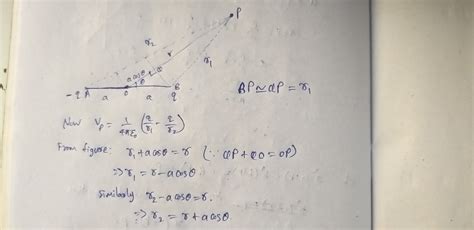 P
r₂
r
r₁
a cosθ
θ
-q A O B
a a q
BP ≃ QP = r₁
Now V_P = 1/4πε₀ (q/r₁ - q/r₂)
From figure: r₁ + a cosθ = r (∵ QP + QO = OP)
⇒ r₁ = r - a cosθ
Similarly r₂ - a cosθ = r.
⇒ r₂ = r + a cosθ